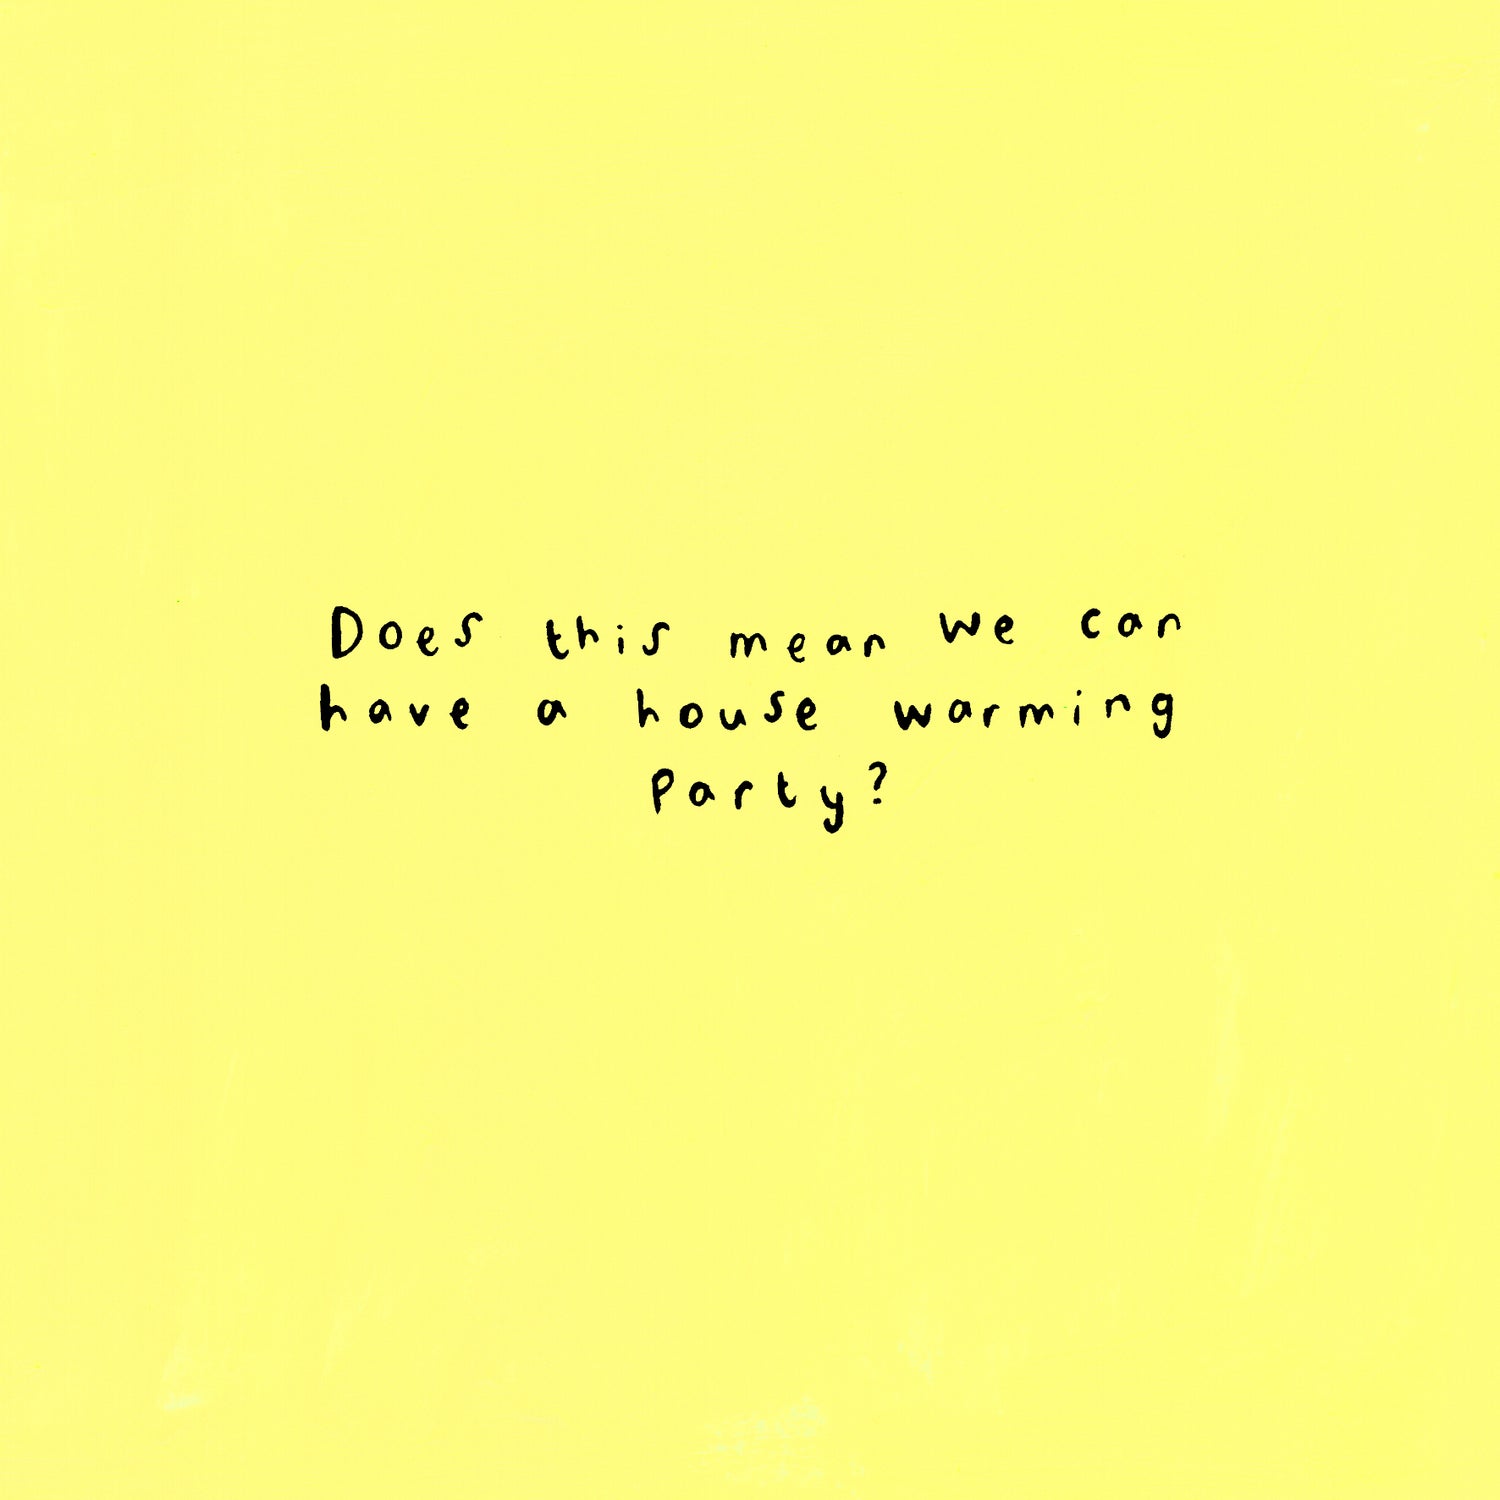 Does this mean we can
have a house warming
Party?